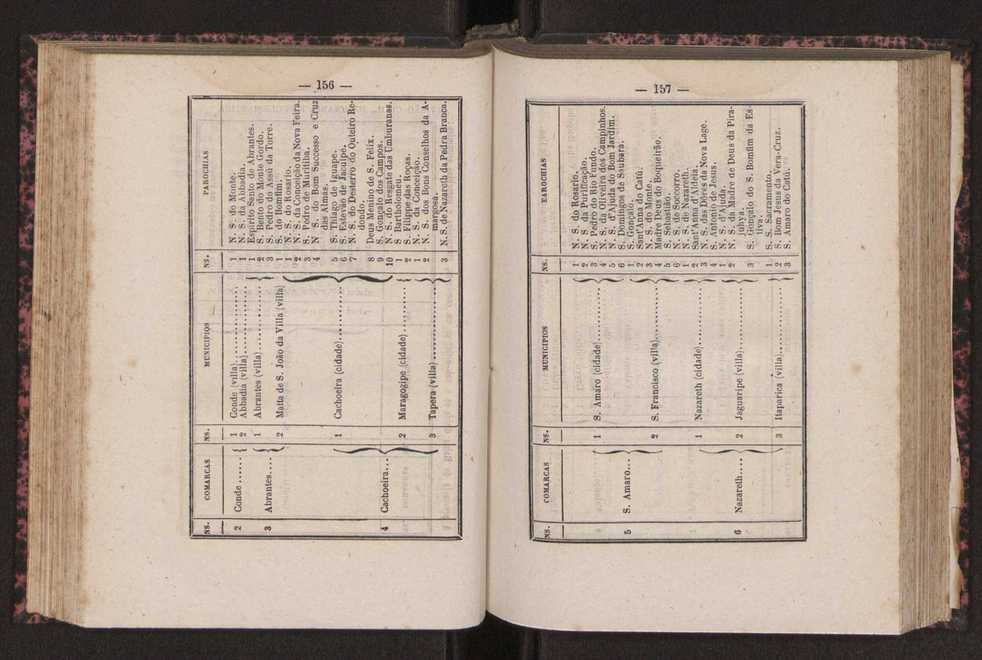 — 156 —
NS. COMARCAS NS. MUNICIPIOS NS. PAROCHIAS
2 Conde...... 1 Conde (villa)............ 1 N. S. do Monte.
2 Abbadia (villa)............ 1 N. S. da Abbadia.
3 Abrantes.... 1 Abrantes (villa)............ 1 Espirito Santo de Abrantes.
2 S. Bento do Monte Gordo.
3 S. Pedro do Assú da Torre.
2 Matta de S. João da Villa (villa) 1 S. do Bomfim.
1 N. S. do Rosario.
2 N. S. da Conceição da Nova Feira.
3 S. Pedro de Muritiba.
4 N. S. do Bom Successo e Cruz
das Almas.
4 Cachoeira... 1 Cachoeira (cidade)............ 5 S. Thiago de Iguape.
6 S. Estevão de Jacuipe.
7 N. S. do Desterro do Outeiro Re-
dondo.
8 Deus Menino de S. Felix.
9 S. Gonçalo dos Campos.
10 N. S. do Resgate das Umburanas.
2 Maragogipe (cidade)...... 1 S Bartholomeu.
2 S. Filippe das Roças.
3 Tapera (villa)............ 1 N. S. da Conceição.
2 N. S. dos Bons Conselhos da A-
margosa.
3 N. S. de Nazareth da Pedra Branca.
— 157 —
NS. COMARCAS NS. MUNICIPIOS NS. PAROCHIAS
5 S. Amaro... 1 S. Amaro (cidade)............ 1 N. S. do Rosario.
2 N. S da Purificação.
3 S. Pedro do Rio Fundo.
4 N. S. da Oliveira dos Campinhos.
5 N. S. d'Ajuda do Bom Jardim.
6 S. Domingos de Saubara.
2 S. Francisco (villa)............ 1 S. Gonçalo.
2 Sant'Anna do Catú.
3 N. S. do Monte.
4 Madre Deus do Boqueirão.
5 S. Sebastião.
6 N. S. do Soccorro.
6 Nazareth.... 1 Nazareth (cidade)............ 1 N. S. de Nazareth.
2 Sant'Anna d'Aldeia.
3 N. S. das Dôres da Nova Lage.
4 S. Antonio de Jesus.
2 Jaguaripe (villa)............ 1 N. S. d'Ajuda.
2 N. S. da Madre de Deus da Pira-
juhya.
3 S. Gonçalo do S. Bomfim da Es-
tiva.
3 Itaparica (villa)............ 1 S. S. Sacramento.
2 S. Bom Jesus da Vera-Cruz.
3 S. Amaro do Catú.